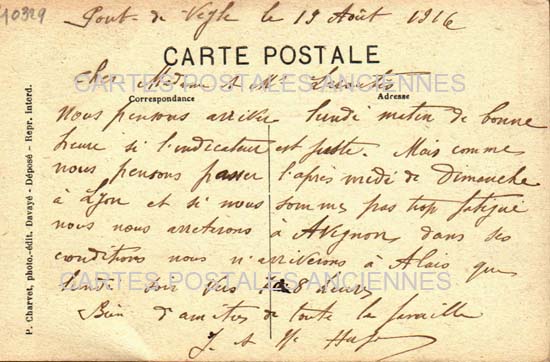 40329
Pont-de-Veyle le 19 Août 1916
CARTE POSTALE
Cher Mr
CARTES POSTALES ANCIENNES
Correspondance
Adresse
Nous pensons arriver lundi matin de bonne
heure si l'indicateur est juste. Mais comme
nous pensons passer l'apres medi de Dimanche
à Lyon et si nous sommes pas trop fatigué
nous nous arreterons à Avignon dans ses
conditions nous n'arriverons à Alais que
CARTES POSTALES ANCIENNES
lundi soir vers 8 heures
Bien d'amities de toute la famille
P. Charvet, photo.-édit. Davayé - Déposé - Repr. interd.